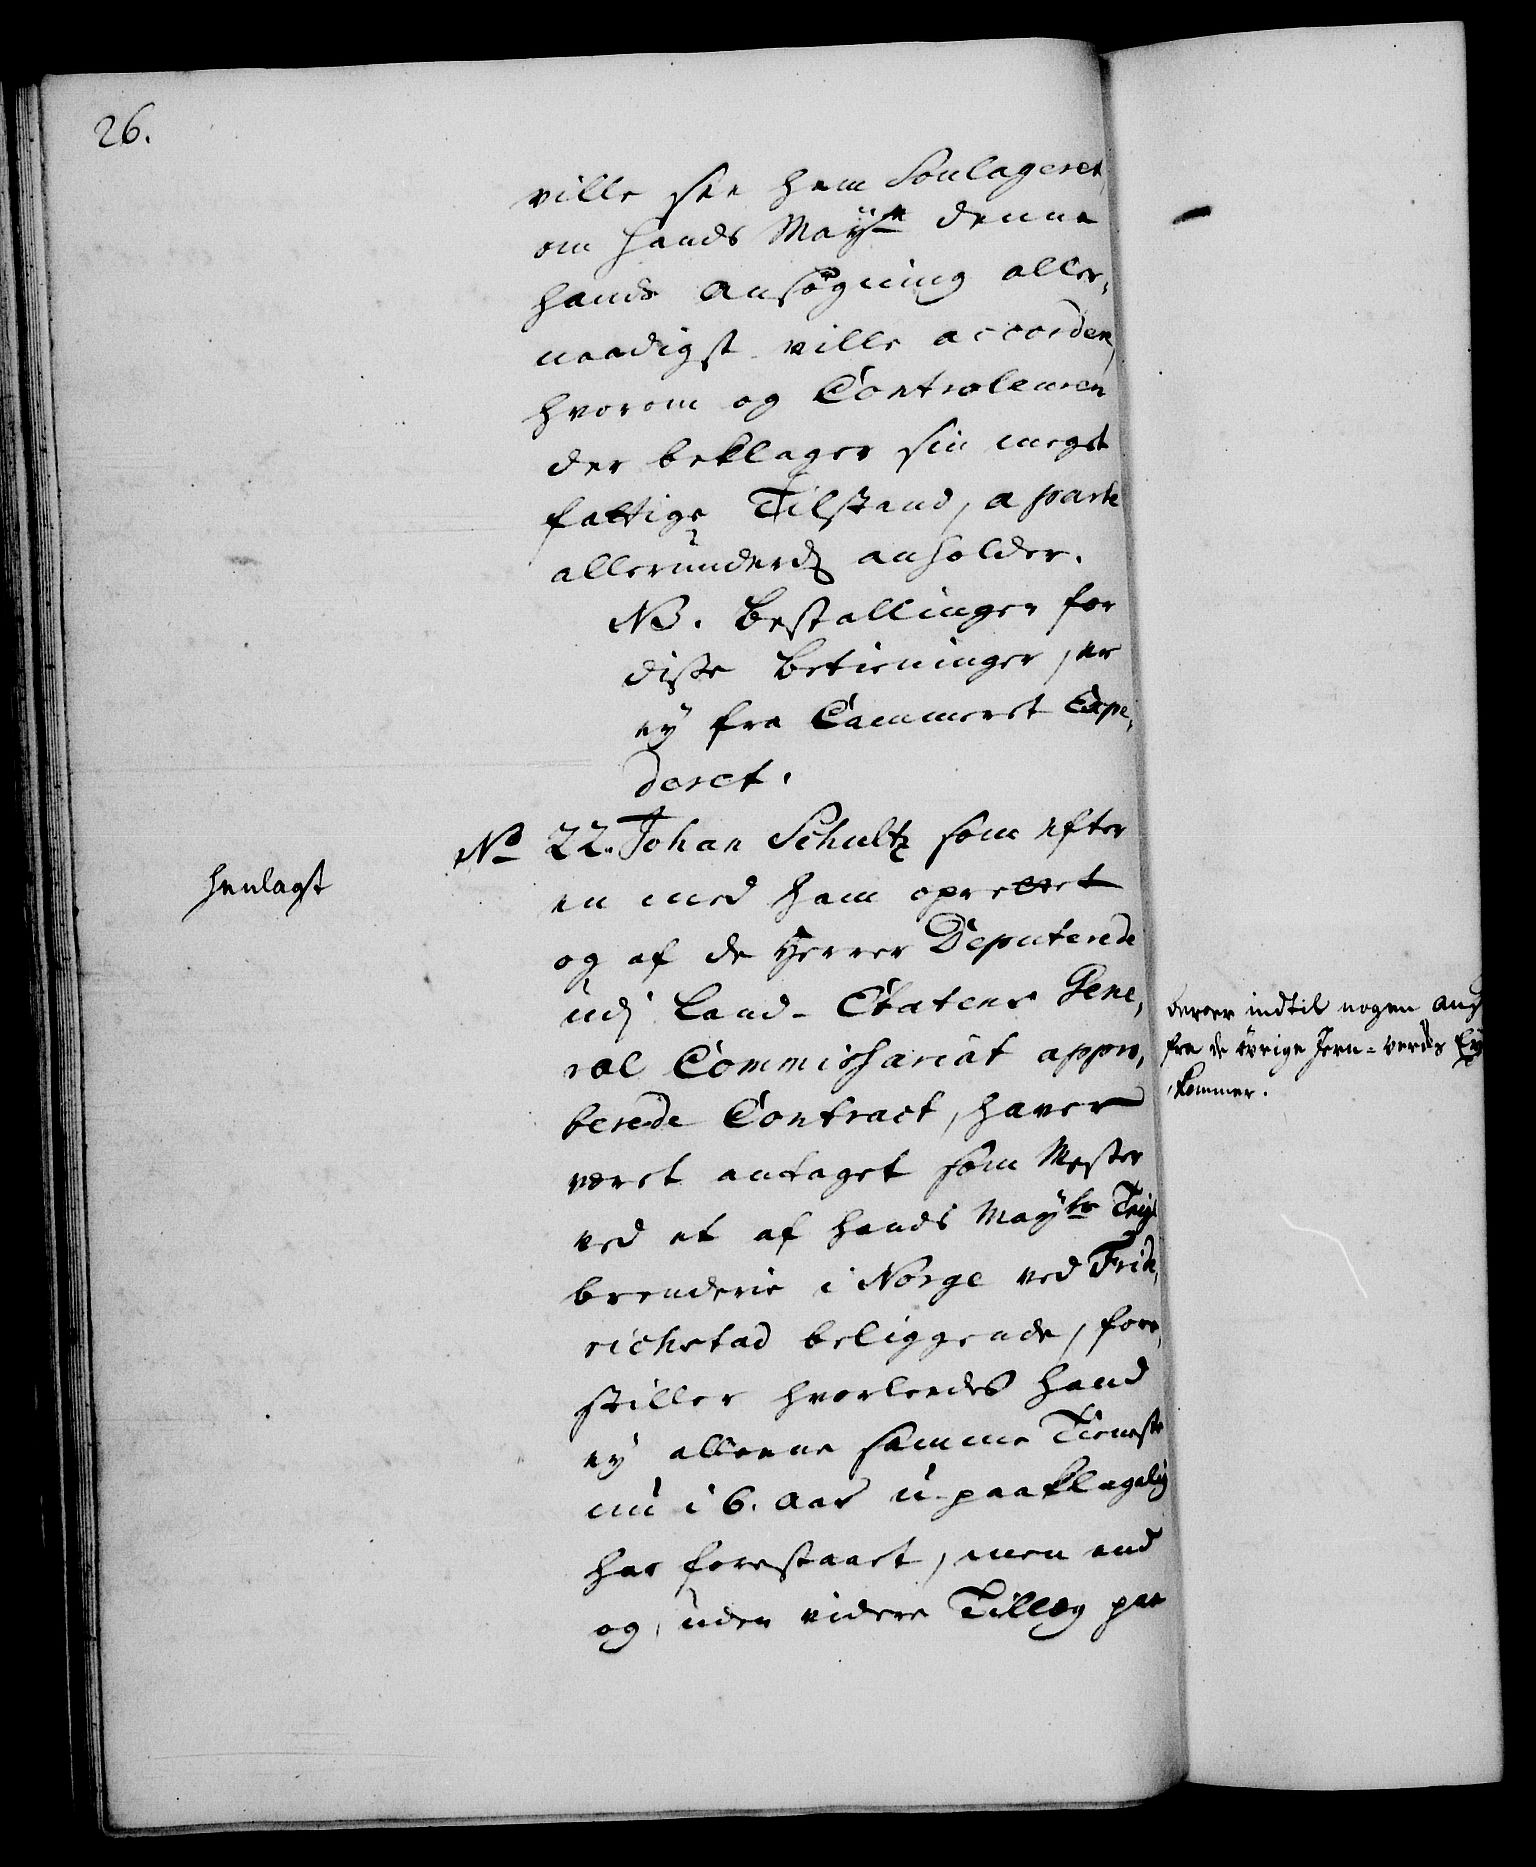 26.
ville see ham Soulageret,
om hands May<sup>st</sup> denne
hands ansøgning aller-
naadigst ville accordere,
hvorom og Controleuren
der beklager sin meget
fattige Tilstand, a parte
allerunderd. anholder.
NB. Bestallinger for
disse betieninger, er
ey fra Cammeret Expe-
deret.
No 22. Johan Schultz som efter
henlagt
en med ham oprettet
og af de Herrer Deputerede
udj Land-Etatens Gene-
ral Commissariat appro-
berede Contract, haver
været antaget som Mester
ved et af hands May<sup>ts</sup> Teigl
brenderie i Norge ved Fride-
richstad beliggende, fore-
stiller hvorledes hand
ey alleene samme Tieneste
nu i 6. aar u-paaklagelig
har forestaaet, men end
og, uden videre Tillæg paa
beroer indtil nogen
fra de øvrige Jern-Verkers
kommer.